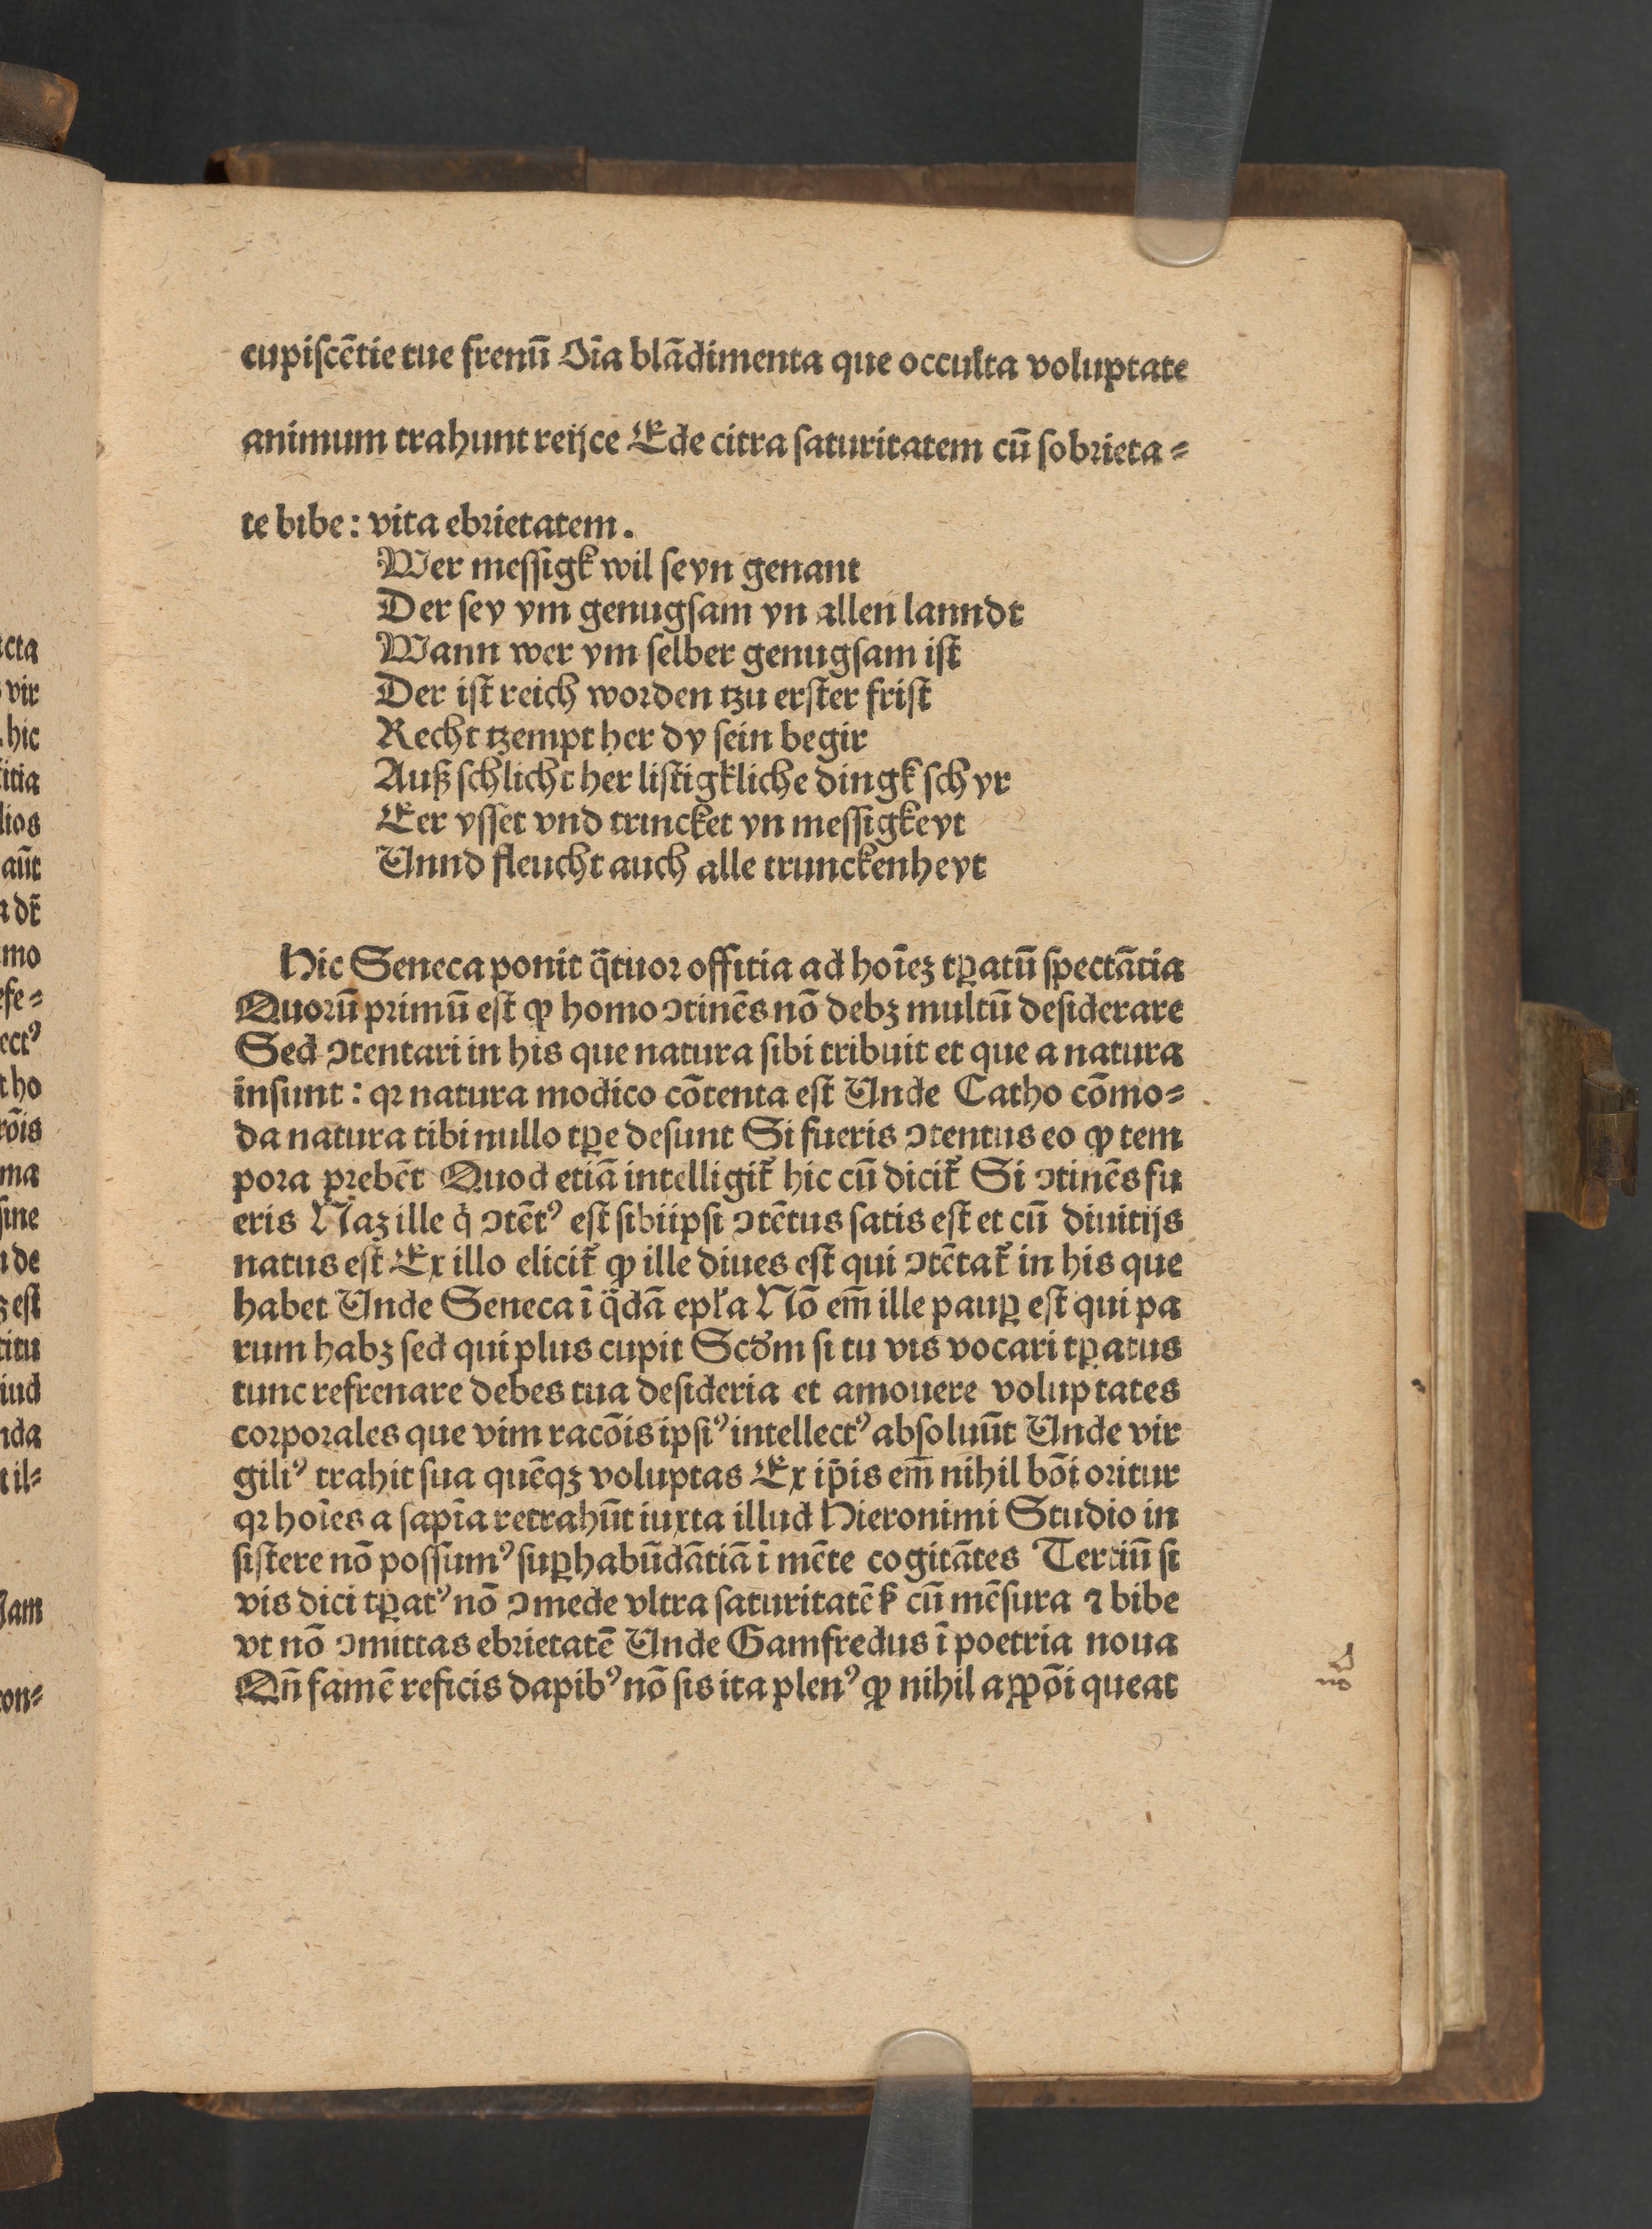 cupiſcētie tue frenū Oīa blādimenta que occulta voluptate
animum trahunt reijce Ede citra ſaturitatem cū ſobrieta⸗
te bibe: vita ebrietatem.
Wer meſſigk wil ſeyn genant
Der ſey ym genugſam yn allen lanndt
Wann wer ym ſelber genugſam iſt
Der iſt reich worden tzu erſter friſt
Recht tzempt her dy ſein begir
Auß ſchlicht her liſtigkliche dingk ſchyr
Eer yſſet vnd trincket yn meſſigkeyt
Vnnd fleucht auch alle trunckenheyt
Hic Seneca ponit q̈tuor offitia ad hoīeꝫ tꝑatū ſpectātia
Quorū primū eſt ꝙ homo ↄtinēs nō debꝫ multū deſiderare
Sed ↄtentari in his que natura ſibi tribuit et que a natura
inſunt: qꝛ natura modico cōtenta eſt Unde Catho cōmo⸗
da natura tibi nullo tꝑe deſunt Si fueris ↄtentus eo ꝙ tem
pora prebēt Quod etiā intelligit̄ hic cū dicit̄ Si ↄtinēs fu
eris Naꝫ ille q̇ ↄtēt⁹ eſt ſibiipſi ↄtētus ſatis eſt et cū diuitijs
natus eſt Ex illo elicit̄ ꝙ ille diues eſt qui ↄtētat̄ in his que
habet Unde Seneca ī q̈dā epl̄a Nō em̄ ille pauꝑ eſt qui pa
rum habꝫ ſed qui plus cupit Scd̄m ſi tu vis vocari tꝑatus
tunc refrenare debes tua deſideria et amouere voluptates
corporales que vim racōis ipſi⁹ intellect⁹ abſoluūt Unde vir
gili⁹ trahit ſua quēqꝫ voluptas Ex ip̄is em̄ nihil bōi oritur
qꝛ hoīes a ſapīa retrahūt iuxta illud Hieronimi Studio in
ſiſtere nō poſſum⁹ ſuꝑhabūdātiā ī mēte cogitātes Tertiū ſi
vis dici tꝑat⁹ nō ↄmede vltra ſaturitatē ꝭ cū mēſura ⁊ bibe
vt nō ↄmittas ebrietatē Unde Gamfredus ī poetria noua
Qn̄ famē reficis dapib⁹ nō ſis ita plen⁹ ꝙ nihil aꝓpōi queat